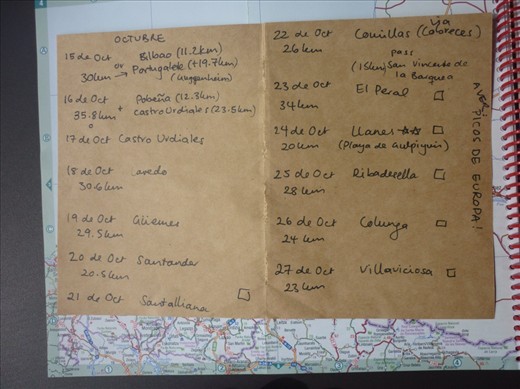 OCTUBRE
15 de Oct Bilbao (11.2km)
or → Portugalete (+19.7km)
30km (Guggenheim)
16 de Oct Pobeña (12.3km)
35.8km + Castro Urdiales (23.5km)
o
17 de Oct Castro Urdiales
18 de Oct Laredo
30.6km
19 de Oct Güemes
29.5km
20 de Oct Santander
20.5km
21 de Oct Santalliana
22 de Oct Comillas (via Cobreces)
26km
pass
(15km) San Vincente de
la Barquera
23 de Oct El Peral
34km
24 de Oct Llanes
20km (Playa de Gulpiyuri)
25 de Oct Ribadesella
28km
26 de Oct Colunga
24km
27 de Oct Villaviciosa
23km
PICOS DE EUROPA!